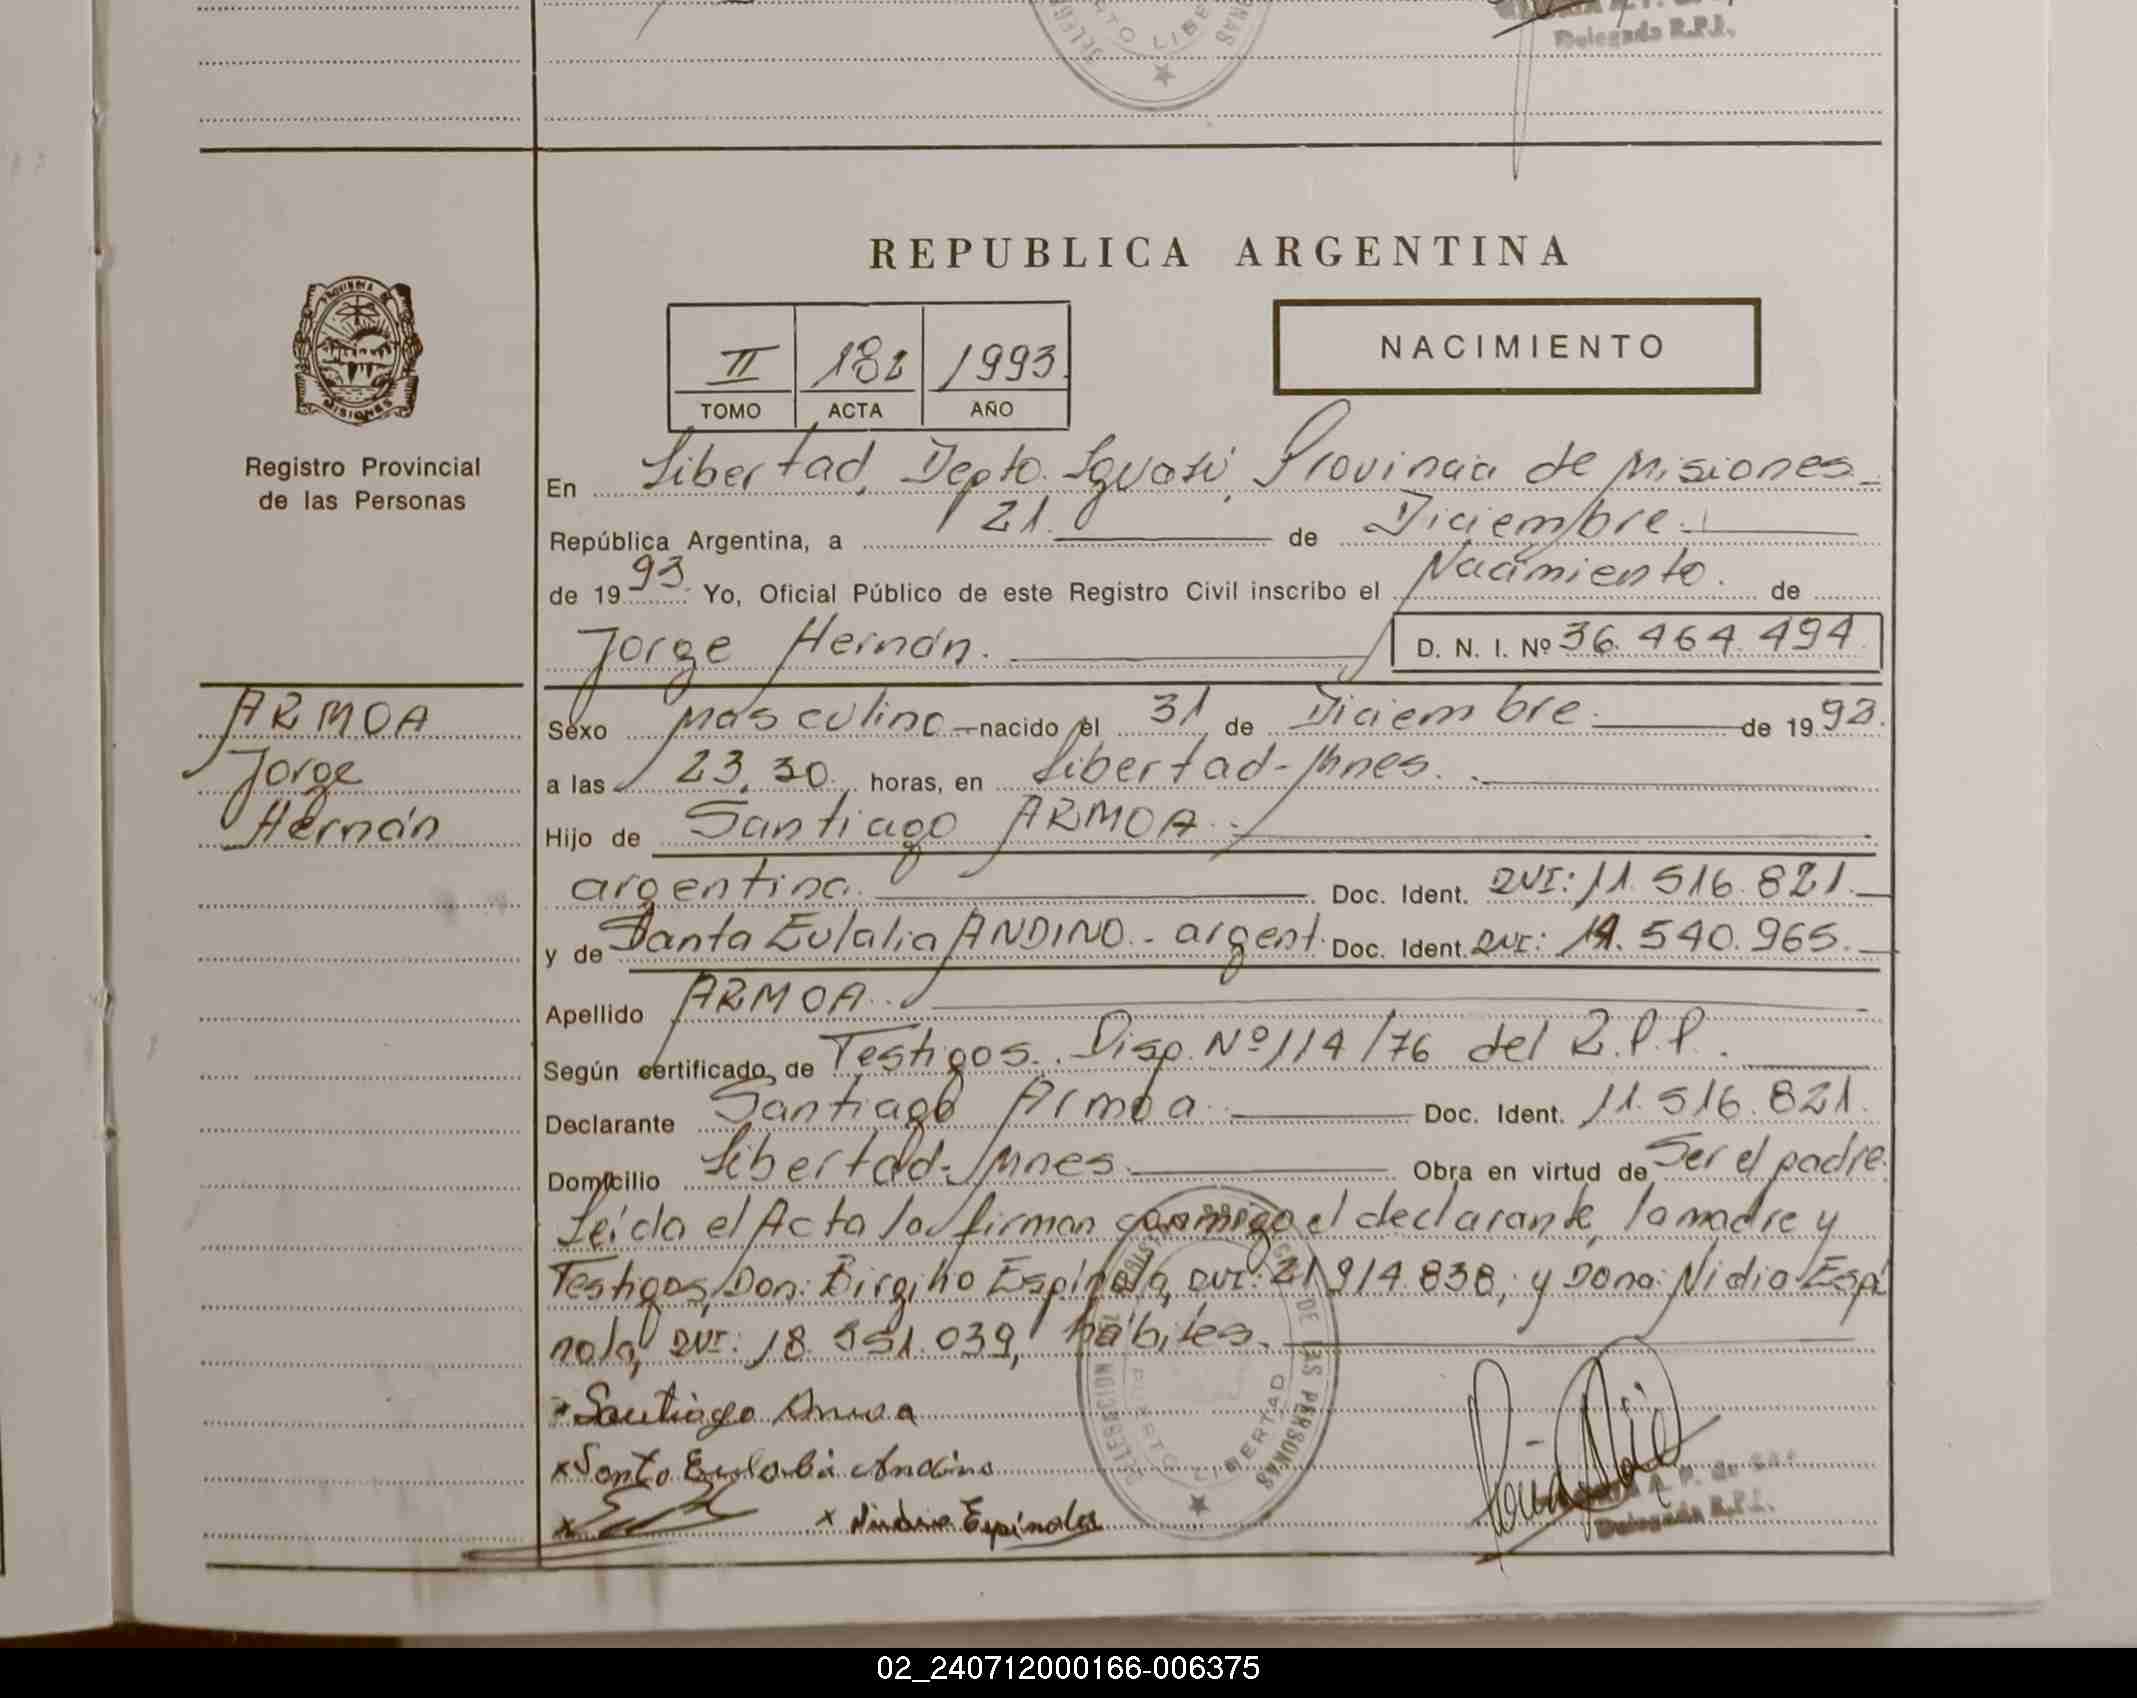 LIBE
Delegada R.P.P.
REPUBLICA ARGENTINA
PROVINCIA DE
MISIONES
II 182 1993
TOMO ACTA AÑO
NACIMIENTO
Registro Provincial
de las Personas
En Libertad, Depto. Iguazú, Provincia de Misiones
República Argentina, a 21. de Diciembre.
de 1993 Yo, Oficial Público de este Registro Civil inscribo el Nacimiento. de
Jorge Hernán. D. N. I. Nº 36.464.494
ARMOA
Jorge
Hernán
Sexo Masculino nacido el 31 de Diciembre. de 1992.
a las 23,30. horas, en Libertad-Mnes.
Hijo de Santiago ARMOA.
argentina. Doc. Ident. DNI: 11.516.821.
y de Santa Eulalia ANDINO.- argent. Doc. Ident. DNI: 14.540.965.
Apellido ARMOA.
Según certificado de Testigos. Disp. Nº 114/76 del R.P.P.
Declarante Santiago Armoa. Doc. Ident. 11.516.821.
Domicilio Libertad-Mnes. Obra en virtud de Ser el padre.
Leída el Acta la firman conmigo el declarante, la madre y
Testigos, Don: Espínola, DNI: 21.914.838, y Dona: Nidia Espí
nola, DNI: 18.551.039, hábiles.
DELEGACION DE LAS PERSONAS
PUERTO LIBERTAD
x Santiago Armoa
x Santa Eulalia Andino
x x Espínola
Delegada R.P.P.
02_240712000166-006375